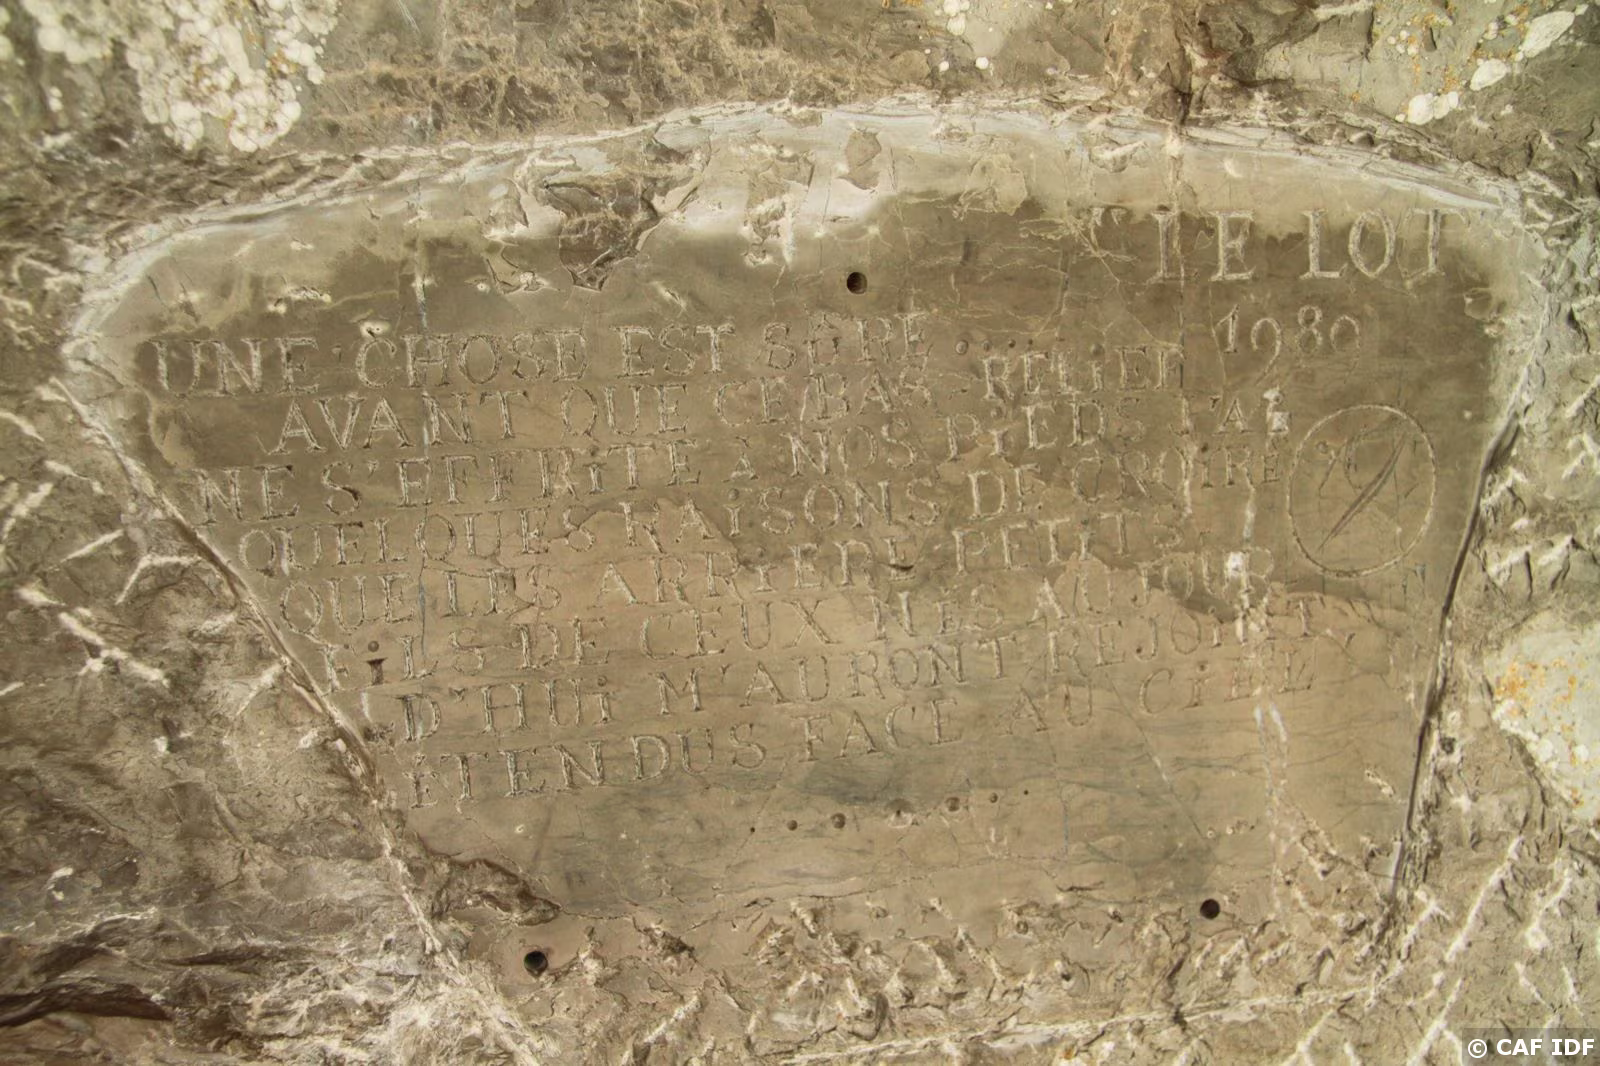 LE LOT
1989
UNE CHOSE EST SÛRE .....
AVANT QUE CE BAS-RELiEF
NE S'EFFRiTE A NOS PiEDS J'Ai
QUELQUES RAiSONS DE CROiRE
QUE LES ARRiERE PETiTS
FiLS DE CEUX NES AUJOUR
D'HUi M'AURONT REJOiNT
ÉTENDUS FACE AU CiEL
© CAF IDF